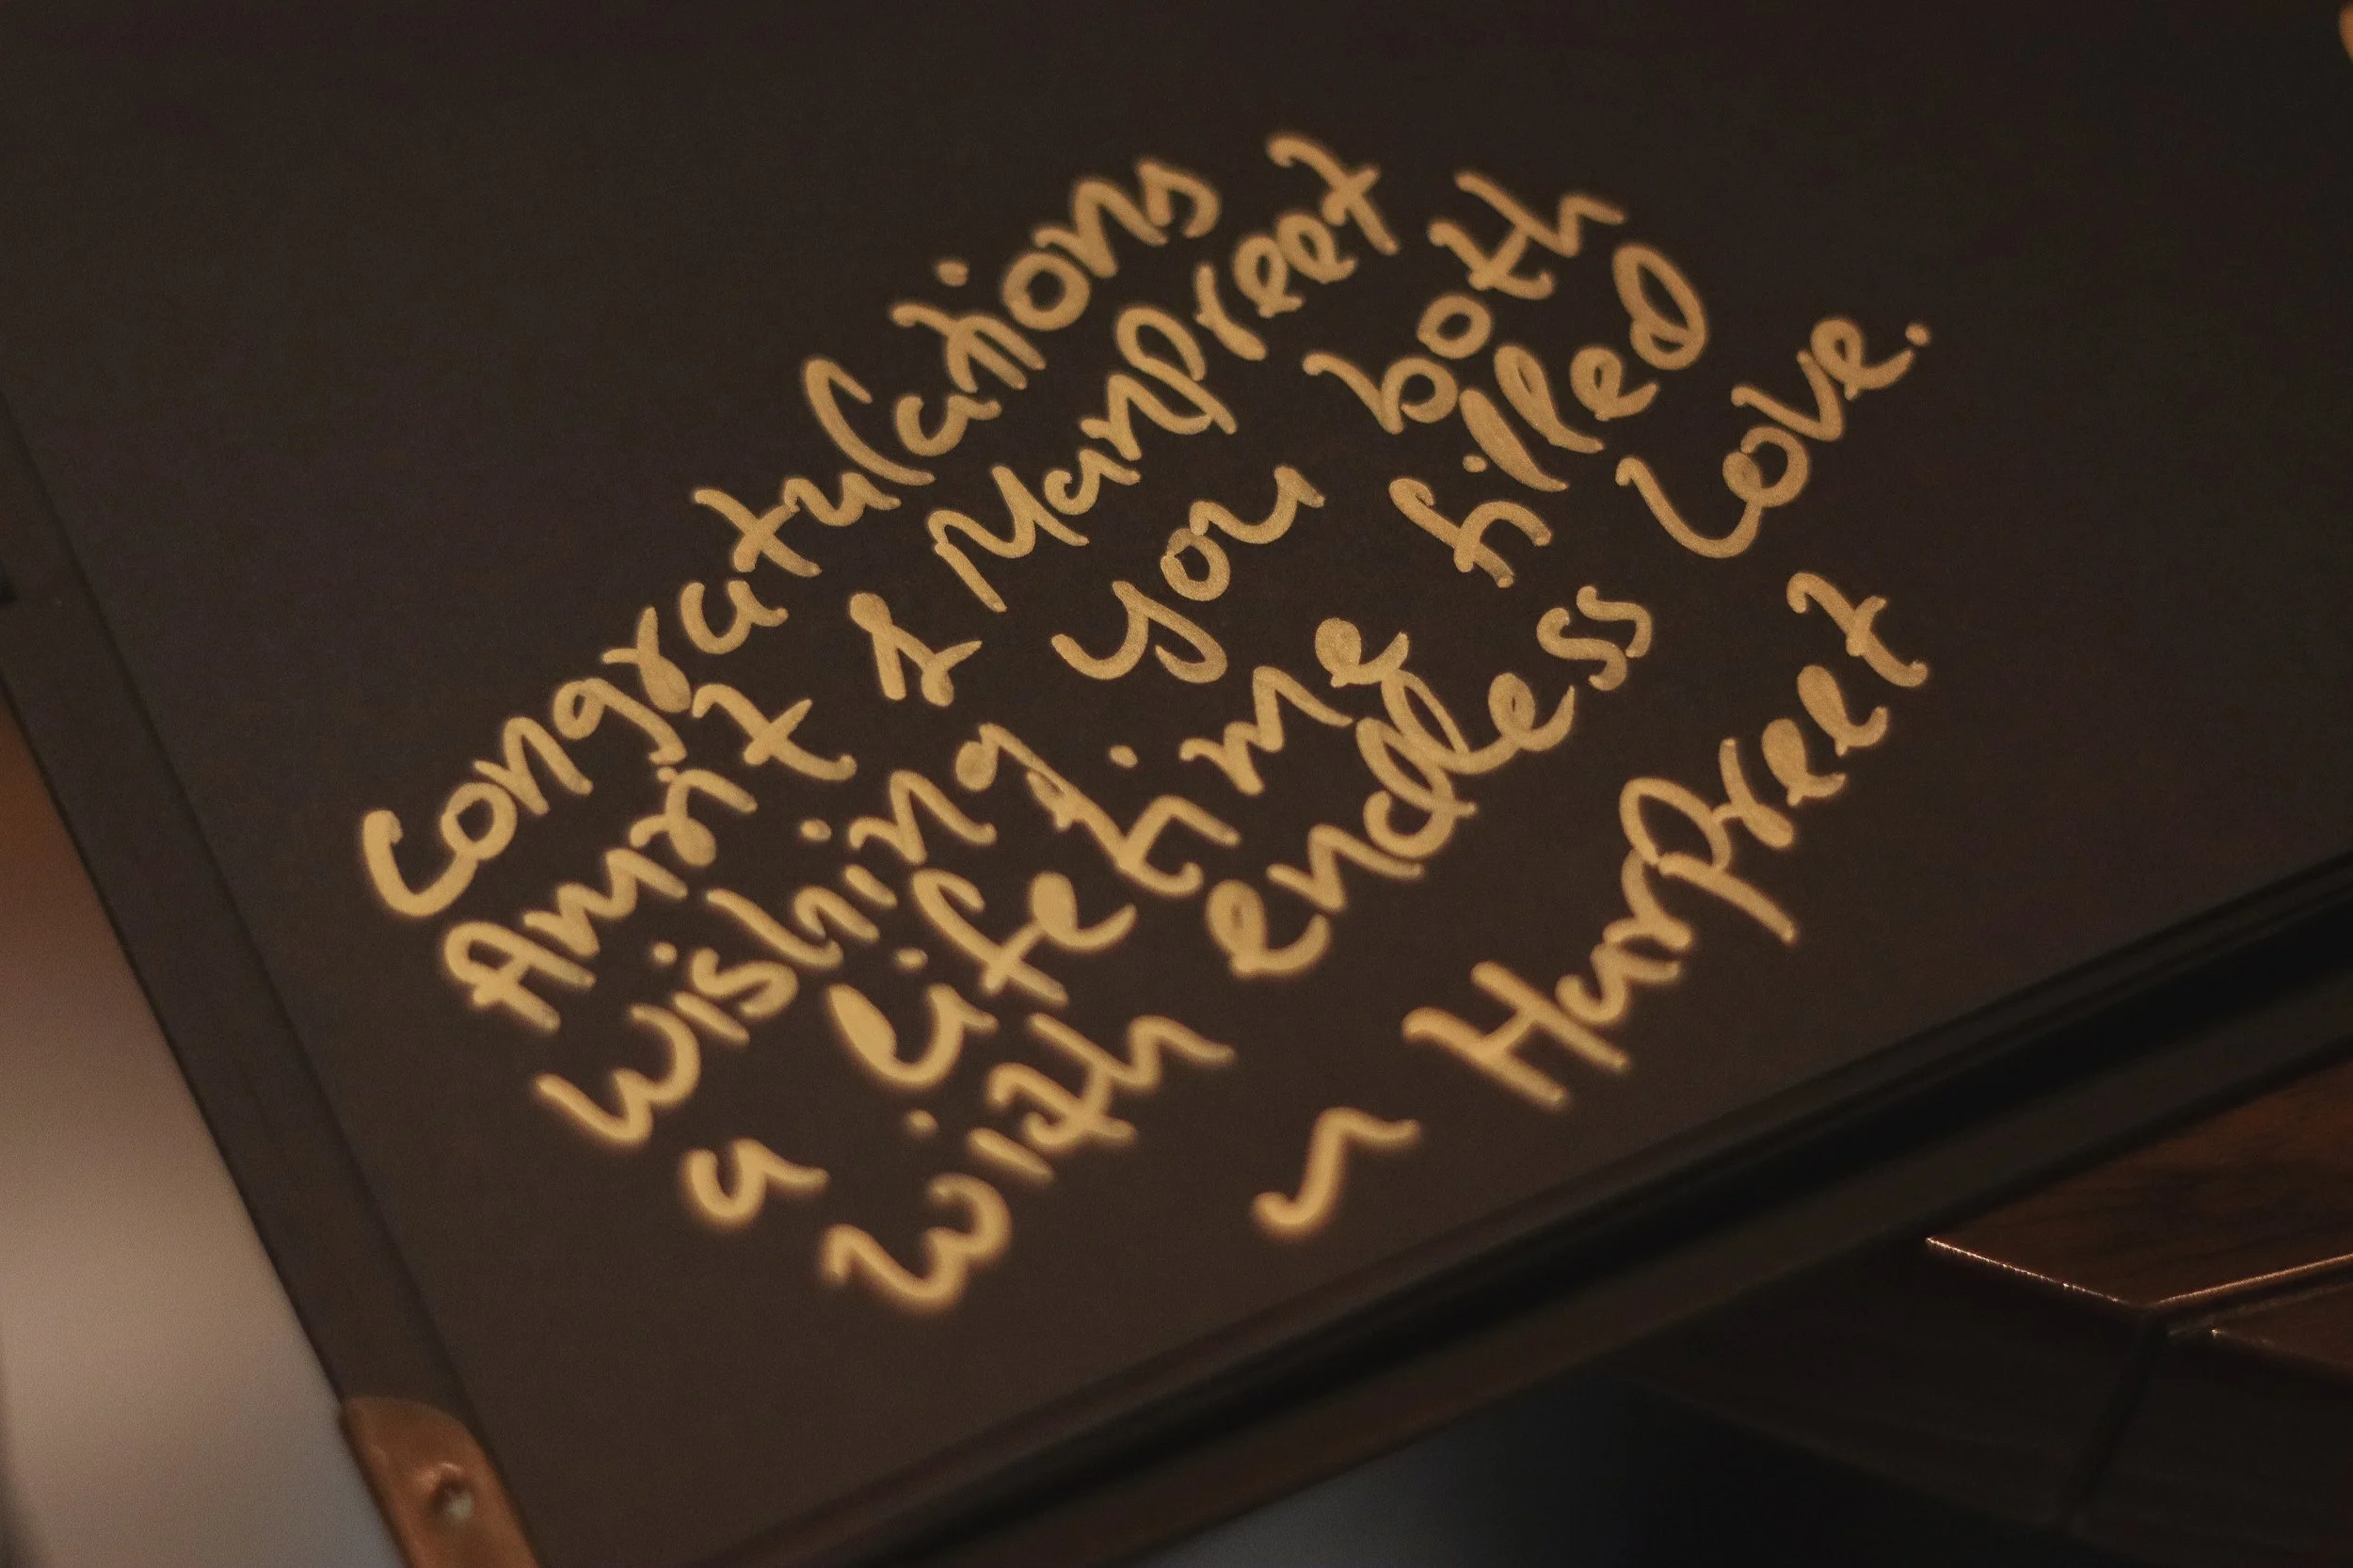 Congratulations
Amrit & Manpreet
Wishing you both
a lifetime filled
with endless love.
~ Harpreet